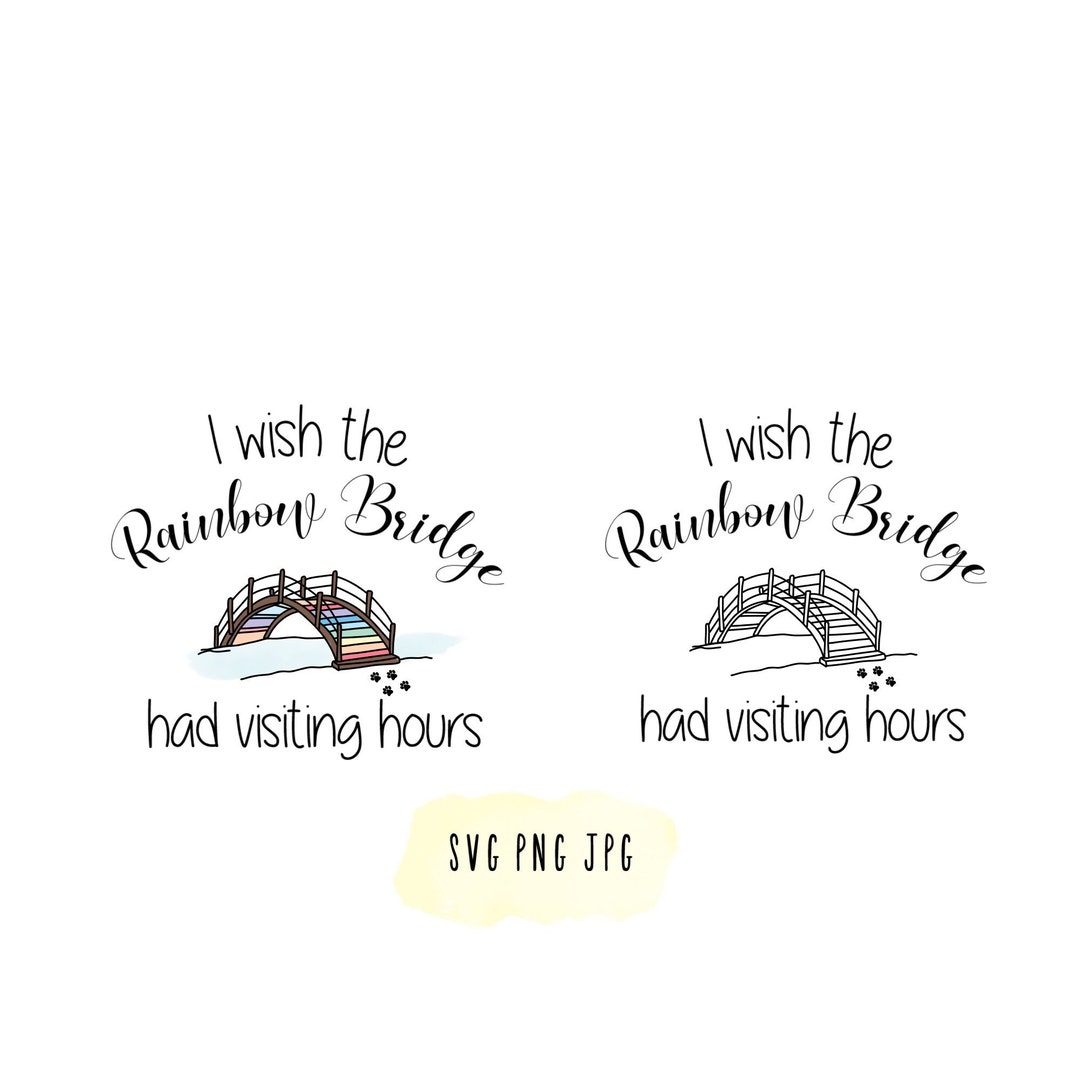 I wish the
Rainbow Bridge
had visiting hours
I wish the
Rainbow Bridge
had visiting hours
SVG PNG JPG